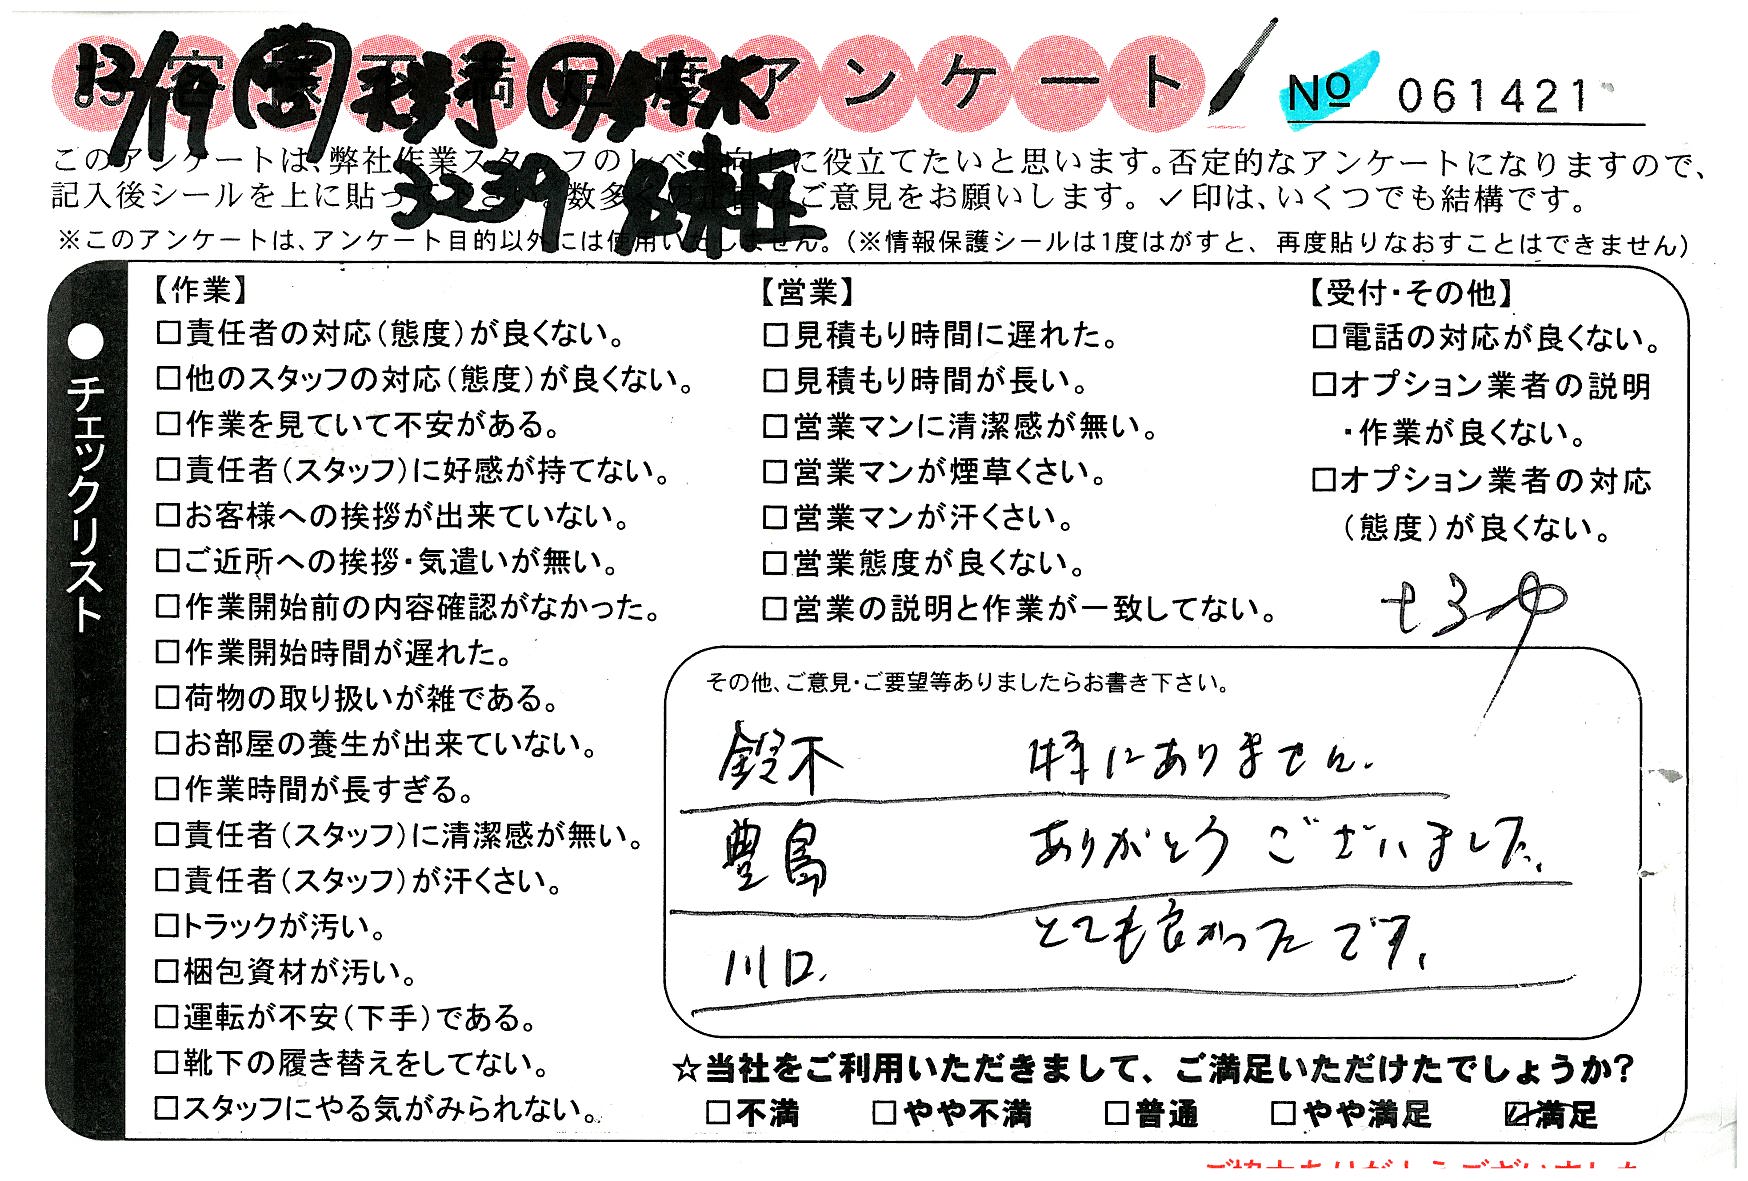 お客様不満足度アンケート
No 061421
12/19
3239
このアンケートは、弊社作業スタッフのレベル向上に役立てたいと思います。否定的なアンケートになりますので、
記入後シールを上に貼っ 数多くの正直なご意見をお願いします。✓印は、いくつでも結構です。
※このアンケートは、アンケート目的以外には使用いたしません。（※情報保護シールは1度はがすと、再度貼りなおすことはできません）
●チェックリスト
【作業】
□責任者の対応（態度）が良くない。
□他のスタッフの対応（態度）が良くない。
□作業を見ていて不安がある。
□責任者（スタッフ）に好感が持てない。
□お客様への挨拶が出来ていない。
□ご近所への挨拶・気遣いが無い。
□作業開始前の内容確認がなかった。
□作業開始時間が遅れた。
□荷物の取り扱いが雑である。
□お部屋の養生が出来ていない。
□作業時間が長すぎる。
□責任者（スタッフ）に清潔感が無い。
□責任者（スタッフ）が汗くさい。
□トラックが汚い。
□梱包資材が汚い。
□運転が不安（下手）である。
□靴下の履き替えをしてない。
□スタッフにやる気がみられない。
【営業】
□見積もり時間に遅れた。
□見積もり時間が長い。
□営業マンに清潔感が無い。
□営業マンが煙草くさい。
□営業マンが汗くさい。
□営業態度が良くない。
□営業の説明と作業が一致してない。
【受付・その他】
□電話の対応が良くない。
□オプション業者の説明
・作業が良くない。
□オプション業者の対応
（態度）が良くない。
その他、ご意見・ご要望等ありましたらお書き下さい。
鈴木 特にありません.
豊島 ありがとうございました.
川口. とても良かったです.
☆当社をご利用いただきまして、ご満足いただけたでしょうか？
□不満 □やや不満 □普通 □やや満足 ☑満足
ご協力ありがとうございました